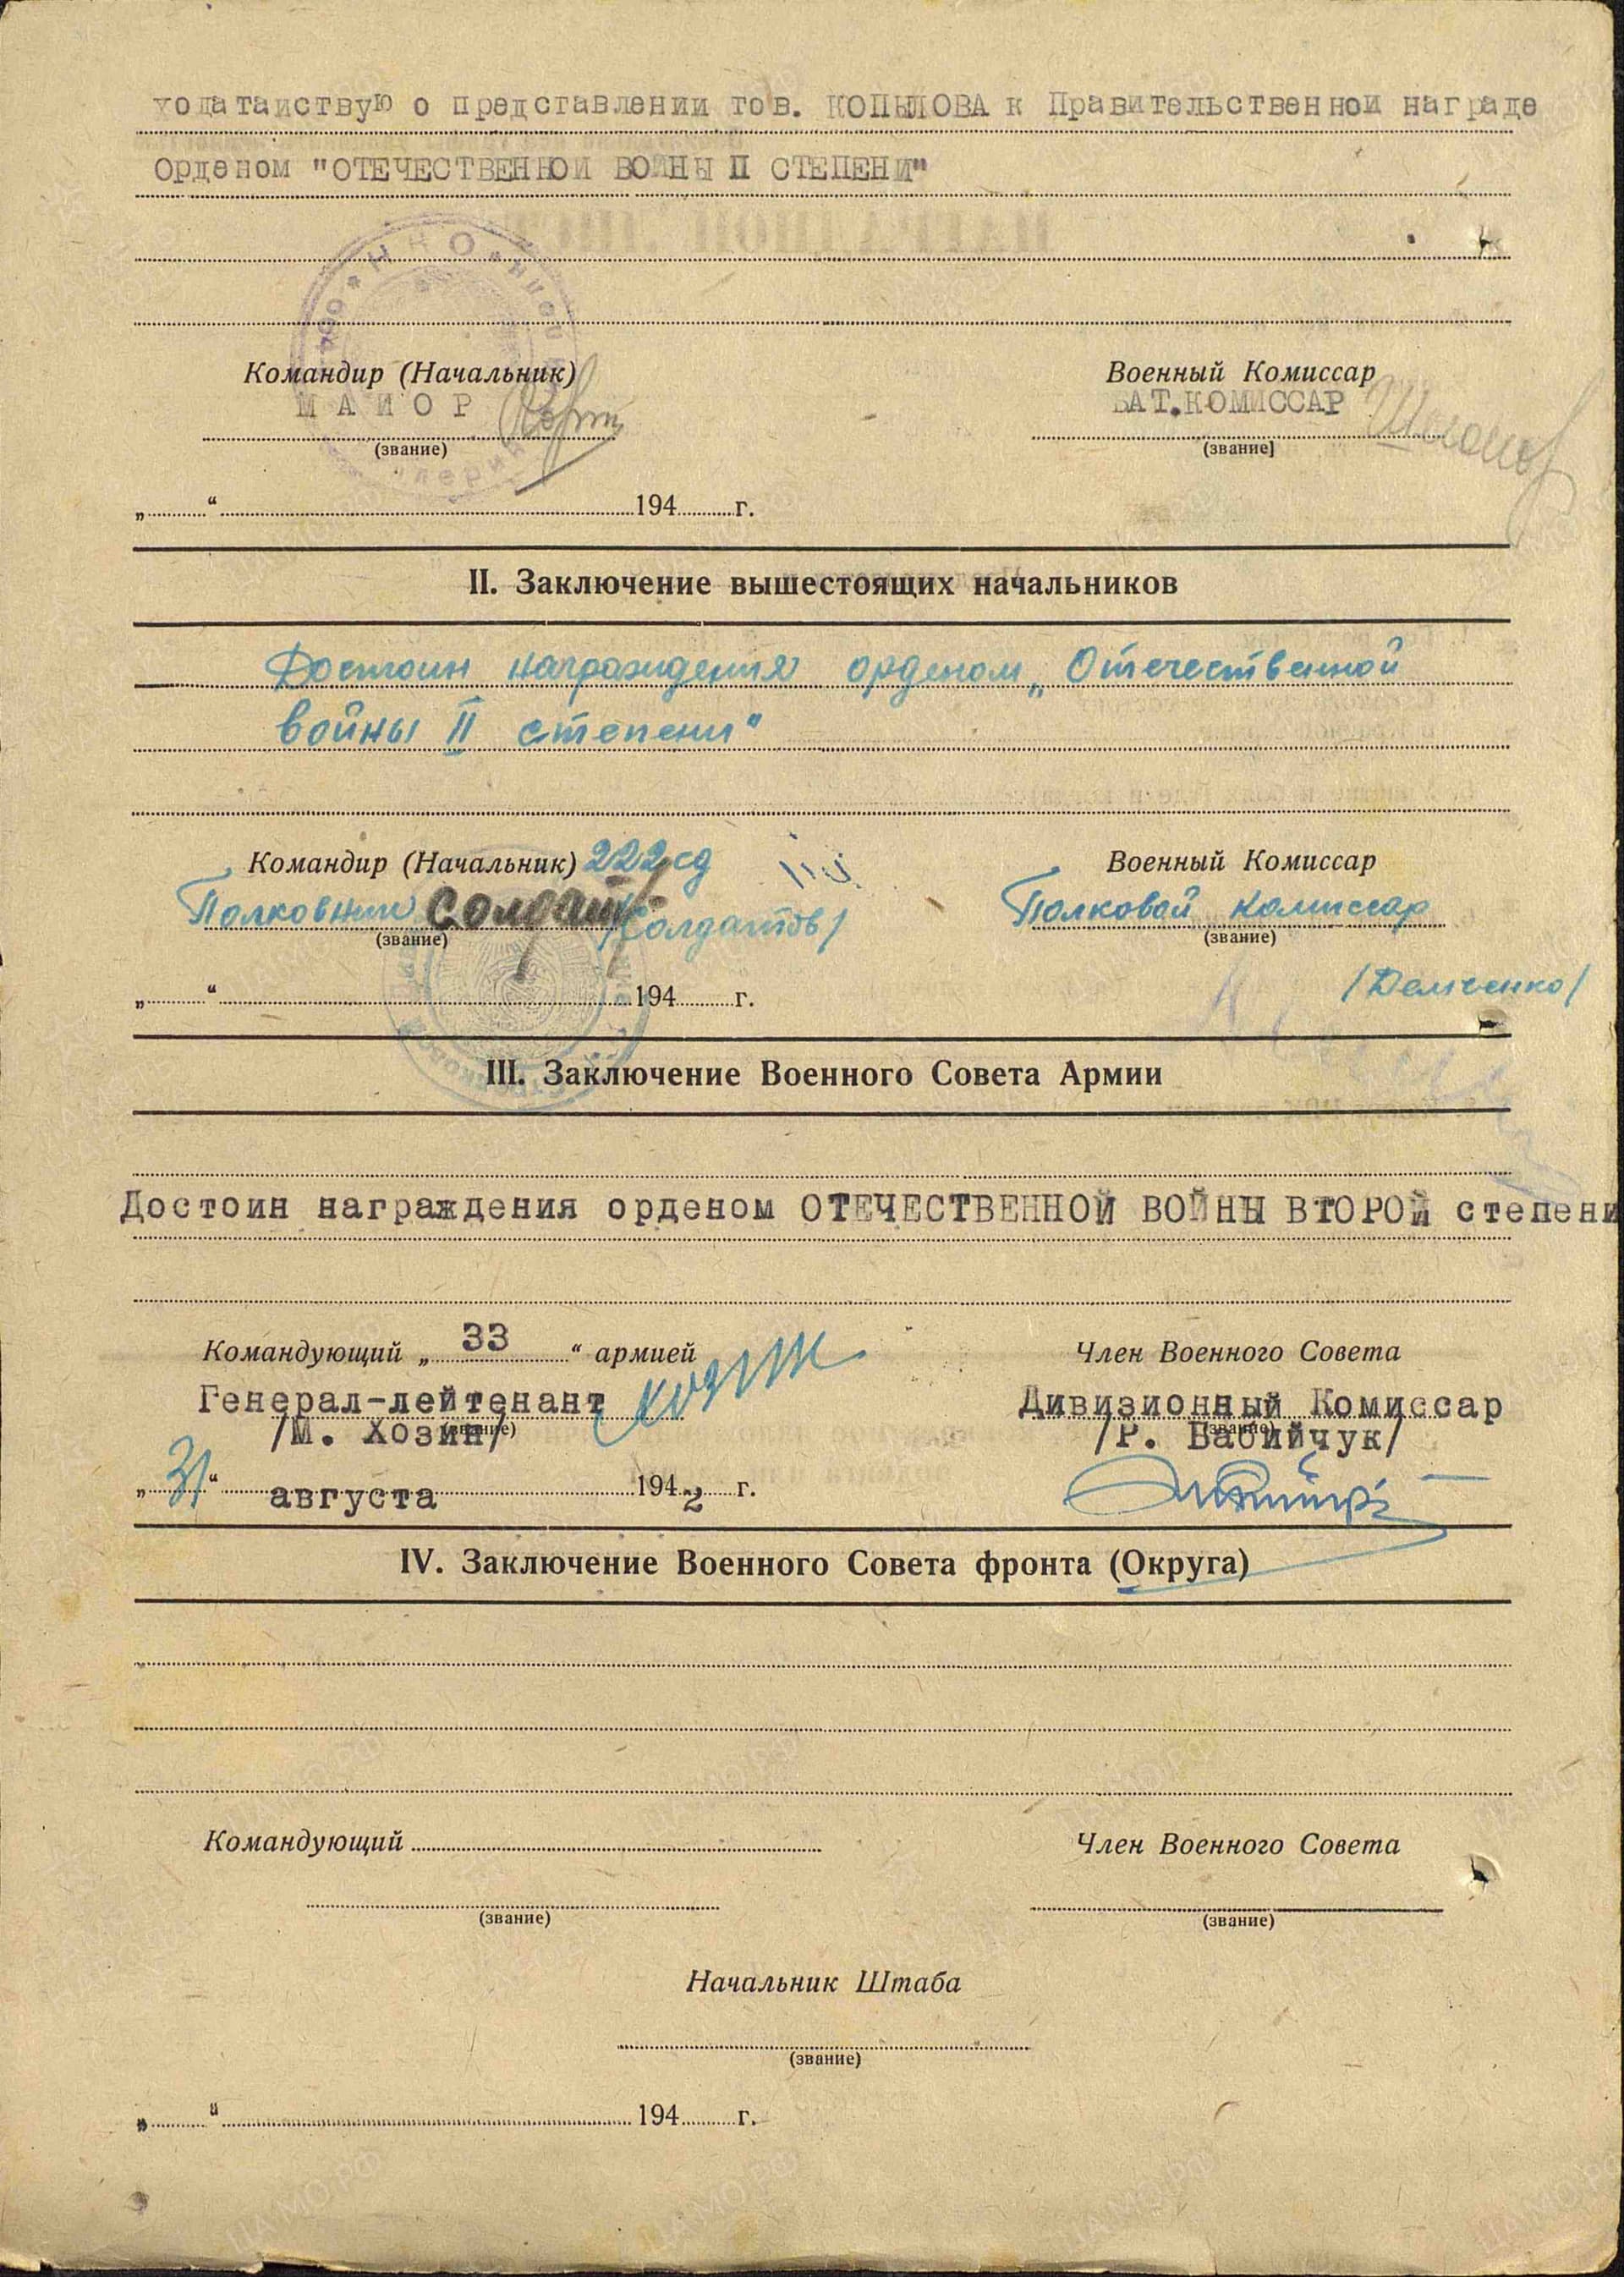 ходатайствую о представлении тов. КОПЫЛОВА к Правительственной награде
Орденом "ОТЕЧЕСТВЕННОЙ ВОЙНЫ II СТЕПЕНИ"
Командир (Начальник)
Военный Комиссар
МАЙОР
БАТ.КОМИССАР
(звание)
(звание)
„ “ 194 г.
II. Заключение вышестоящих начальников
Достоин награждения орденом „Отечественной
войны II степени“
Командир (Начальник) 222 сд
Военный Комиссар
Полковник Солдат /Солдатов/
Полковой комиссар
(звание)
(звание)
/Демченко/
„ “ 194 г.
III. Заключение Военного Совета Армии
Достоин награждения орденом ОТЕЧЕСТВЕННОЙ ВОЙНЫ ВТОРОЙ степени
Командующий „33“ армией
Член Военного Совета
Генерал-лейтенант
Дивизионный Комиссар
(звание)
(звание)
/М. Хозин/
/Р. Бабийчук/
„31“ августа 1942 г.
IV. Заключение Военного Совета фронта (Округа)
Командующий
Член Военного Совета
(звание)
(звание)
Начальник Штаба
(звание)
„ “ 194 г.